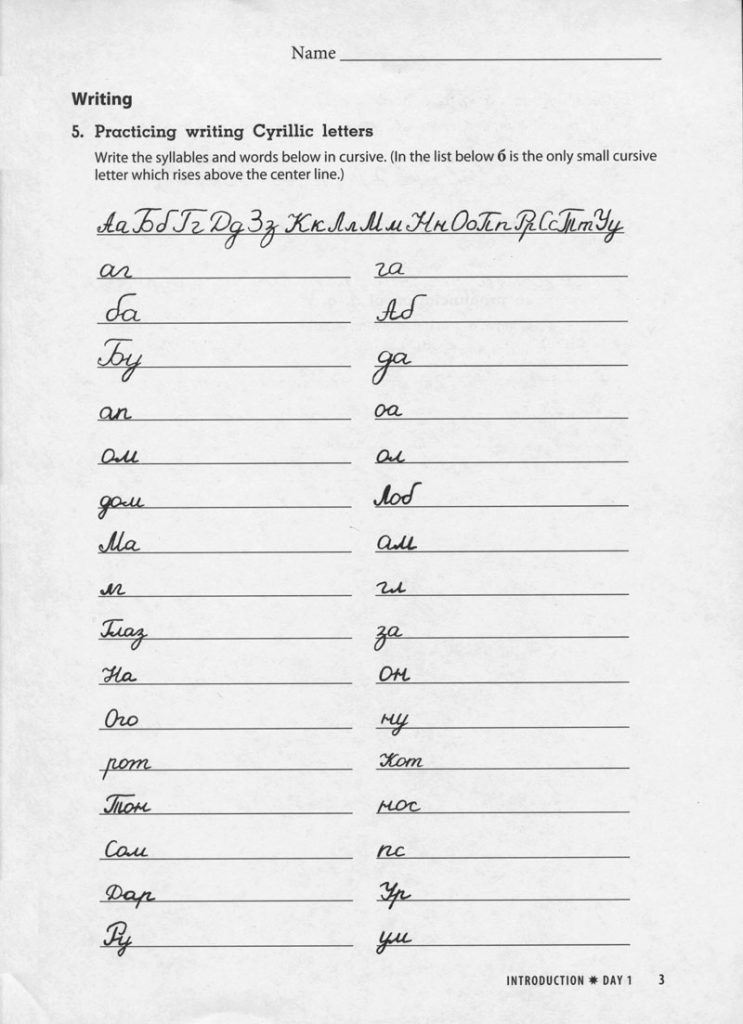 Name
Writing
5. Practicing writing Cyrillic letters
Write the syllables and words below in cursive. (In the list below б is the only small cursive
letter which rises above the center line.)
Аа Бб Гг Дд Зз Кк Лл Мм Нн Оо Пп Рр Сс Тт Уу
аг га
ба Аб
Бу да
ап оа
ом ол
дом Лоб
Ма ам
мг гл
Глаз за
На он
Ого ну
рот Кот
Тон нос
Сом пс
Дар Ур
Ру ум
INTRODUCTION ✷ DAY 1 3